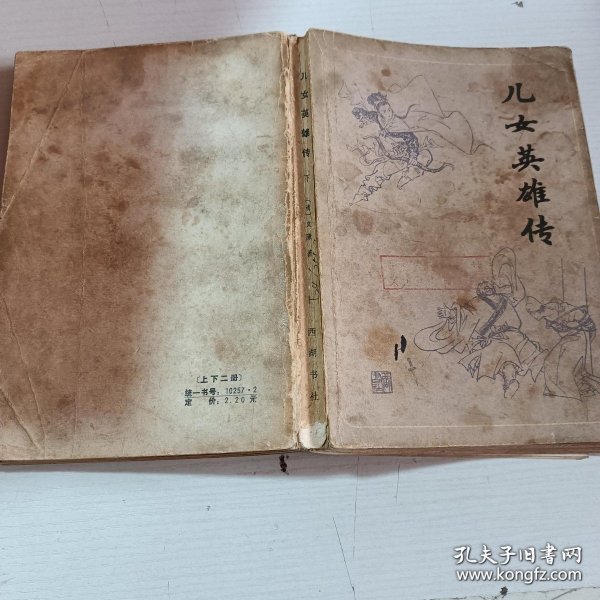 儿女英雄传
儿女英雄传
西湖书社
〔上下二册〕
统一书号：10257·2
定　价：2.20元
孔夫子旧书网
www.kongfz.com